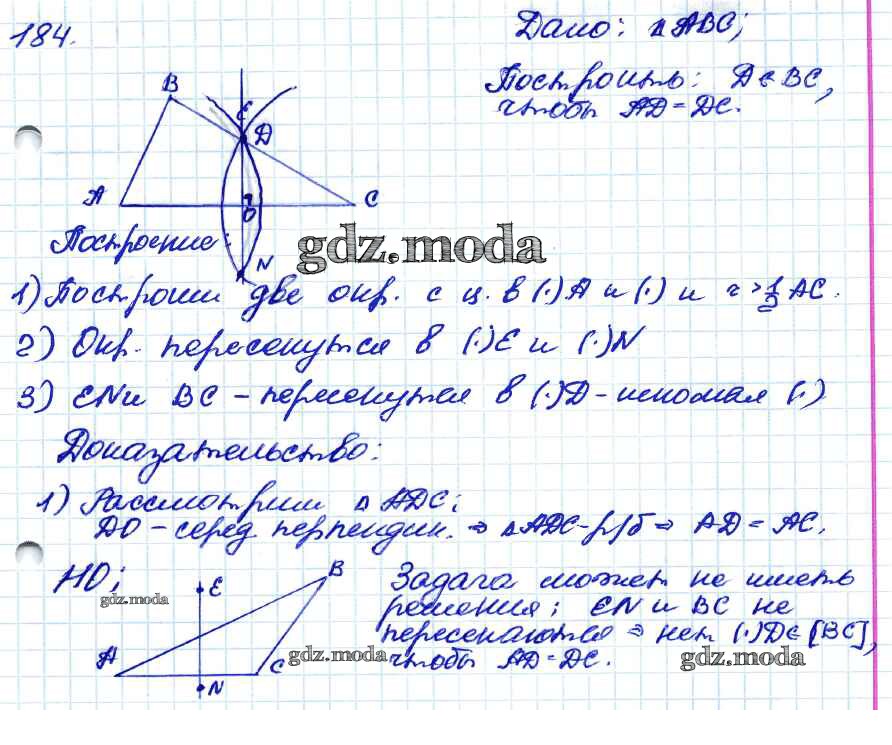 184.
Дано: △ABC;
Построить: D∈BC,
чтобы AD = DC.
B
E
D
A
O
C
N
Построение:
gdz.moda
1) Построим две окр. с ц. в (·)A и (·) и r > 1/2 AC.
2) Окр. пересекутся в (·)E и (·)N
3) EN и BC – пересекутся в (·)D – искомая (·)
Доказательство:
1) Рассмотрим △ADC;
DO – серед. перпендик. ⇒ △ADC – р/б ⇒ AD = AC.
НО;
gdz.moda
E
B
A
C
N
Задача может не иметь
решения; EN и BC не
пересекаются ⇒ нет (·)D∈[BC],
чтобы AD = DC.
gdz.moda
gdz.moda